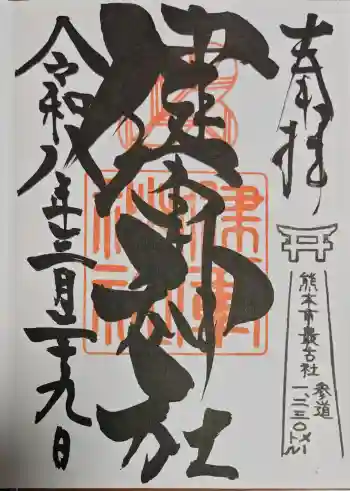 奉拝
熊本市最古社
参道
一、二三〇メートル
健軍神社
令和八年三月二十九日
健軍神社